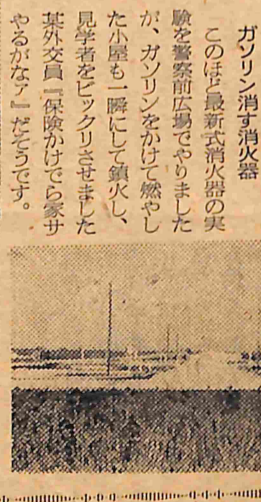 ガソリン消す消火器
このほど最新式消火器の実
験を警察前広場でやりました
が、ガソリンをかけて燃やし
た小屋も一瞬にして鎮火し、
見学者をビックリさせました
某外交員『保険かけでら家サ
やるがなァ』だそうです。